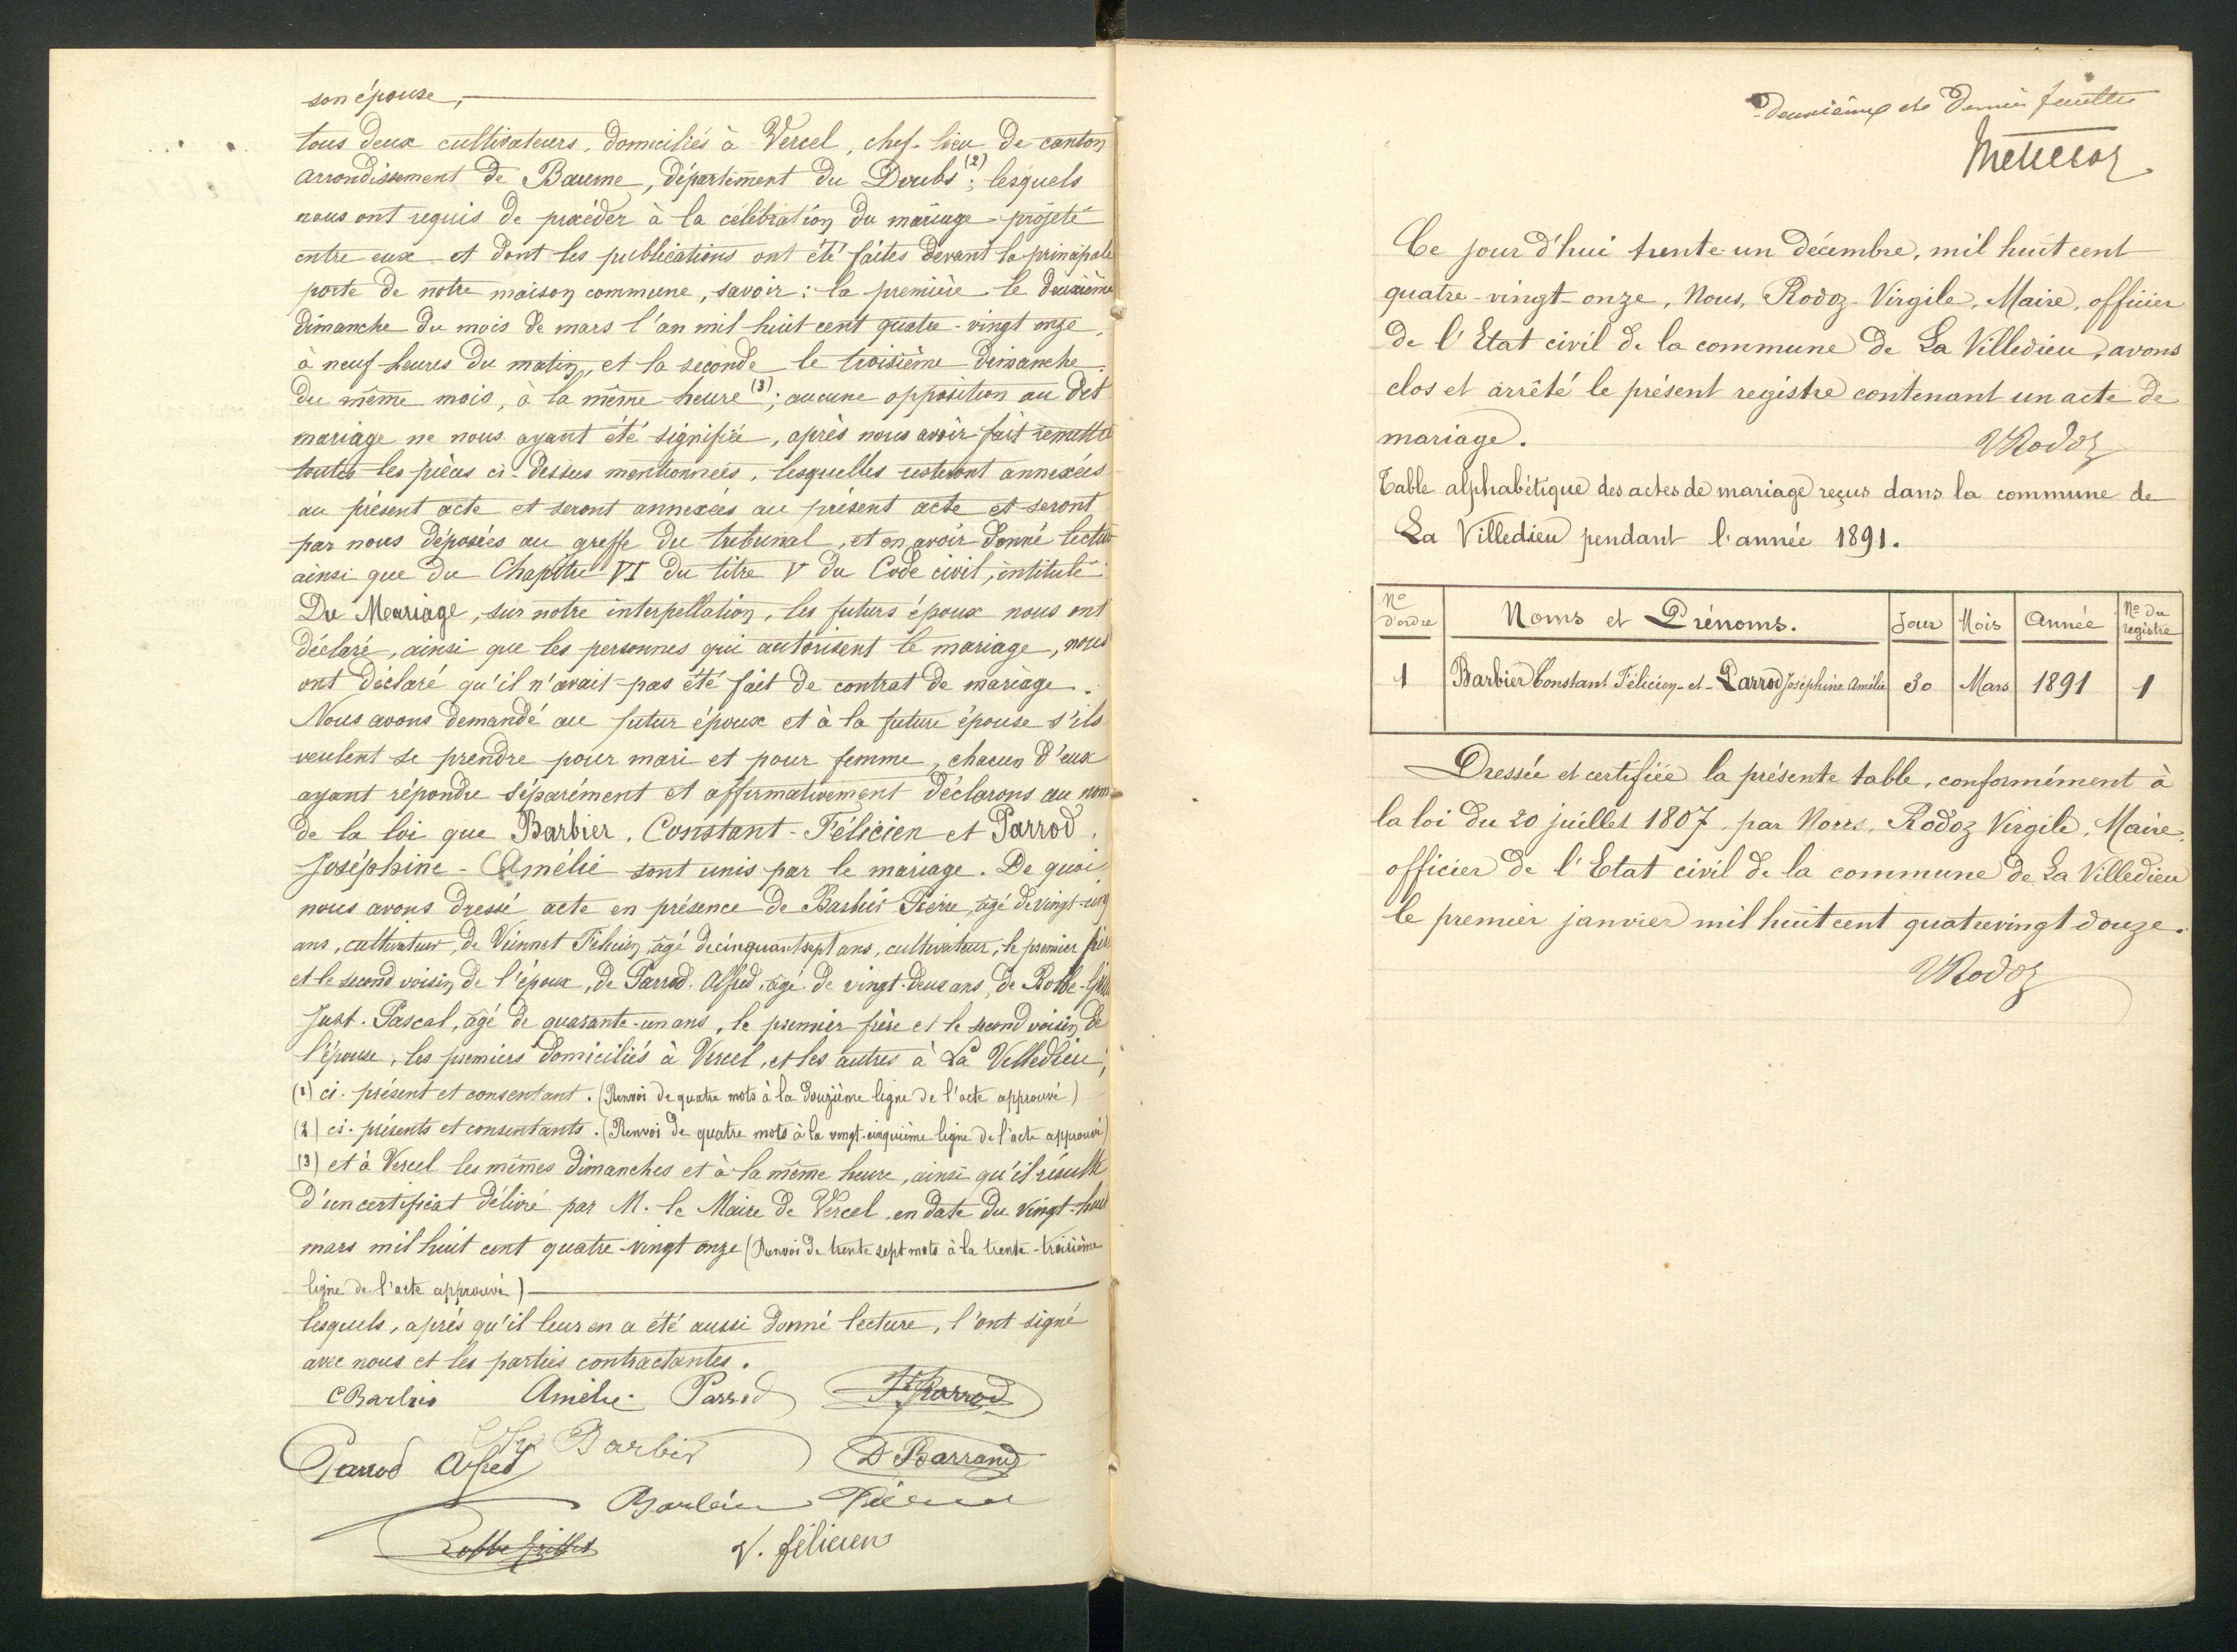 son épouse,
tous deux cultivateurs, domiciliés à Vercel, chef-lieu de canton
arrondissement de Baume, département du Doubs (2); lesquels
nous ont requis de procéder à la célébration du mariage projeté
entre eux et dont les publications ont été faites devant la principale
porte de notre maison commune, savoir: la première le deuxième
dimanche du mois de mars l'an mil huit cent quatre-vingt onze,
à neuf heures du matin, et la seconde le troisième dimanche
du même mois, à la même heure (3); aucune opposition au dit
mariage ne nous ayant été signifiée, après nous avoir fait remettre
toutes les pièces ci-dessus mentionnées, lesquelles resteront annexées
au présent acte et seront annexées au présent acte et seront
par nous déposées au greffe du tribunal, et en avoir donné lecture
ainsi que du Chapitre VI du titre V du Code civil, intitulé
Du Mariage, sur notre interpellation, les futurs époux nous ont
déclaré, ainsi que les personnes qui autorisent le mariage, nous
ont déclaré qu'il n'avait pas été fait de contrat de mariage.
Nous avons demandé au futur époux et à la future épouse s'ils
veulent se prendre pour mari et pour femme, chacun d'eux
ayant répondu séparément et affirmativement déclarons au nom
de la loi que Barbier, Constant-Félicien et Parrod,
Joséphine-Amélie sont unis par le mariage. De quoi
nous avons dressé acte en présence de Barbier Pierre, âgé de vingt-un
ans, cultivateur, de Viennet Félicien, âgé de cinquant sept ans, cultivateur, le premier frère
et le second voisin de l'époux, de Parrod Alfred, âgé de vingt-deux ans, de Robbe-
Just-Pascal, âgé de quarante-un ans, le premier frère et le second voisin de
l'épouse, les premiers domiciliés à Vercel, et les autres à La Villedieu;
(1) ci-présent et consentant. (Renvoi de quatre mots à la douzième ligne de l'acte approuvé)
(2) ci-présents et consentants. (Renvoi de quatre mots à la vingt-cinquième ligne de l'acte approuvé)
(3) et à Vercel les mêmes dimanches et à la même heure, ainsi qu'il résulte
d'un certificat délivré par M. le Maire de Vercel, en date du vingt-huit
mars mil huit cent quatre-vingt onze (Renvoi de trente sept mots à la trente-troisième
ligne de l'acte approuvé)
lesquels, après qu'il leur en a été aussi donné lecture, l'ont signé
avec nous et les parties contractantes.
C Barbier Amélie Parrod Parrod
Barbier
Parrod Alfred D Barrand
Barbier Pierre
Robbe Grillet V. félicien
Deuxième et dernier feuillet
Ce jour d'hui trente-un décembre, mil huit cent
quatre-vingt-onze, Nous, Rodoz-Virgile, Maire, officier
de l'Etat civil de la commune de La Villedieu, avons
clos et arrêté le présent registre contenant un acte de
mariage. VRodoz
Table alphabétique des actes de mariage reçus dans la commune de
La Villedieu pendant l'année 1891.
No d'ordre Noms et Prénoms. Jour Mois Année No du registre
1 Barbier Constant Félicien-et-Parrod Joséphine Amélie 30 Mars 1891 1
Dressée et certifiée la présente table, conformément à
la loi du 20 juillet 1807, par Nous, Rodoz Virgile, Maire,
officier de l'Etat civil de la commune de La Villedieu
le premier janvier mil huit cent quatrevingt douze.
VRodoz